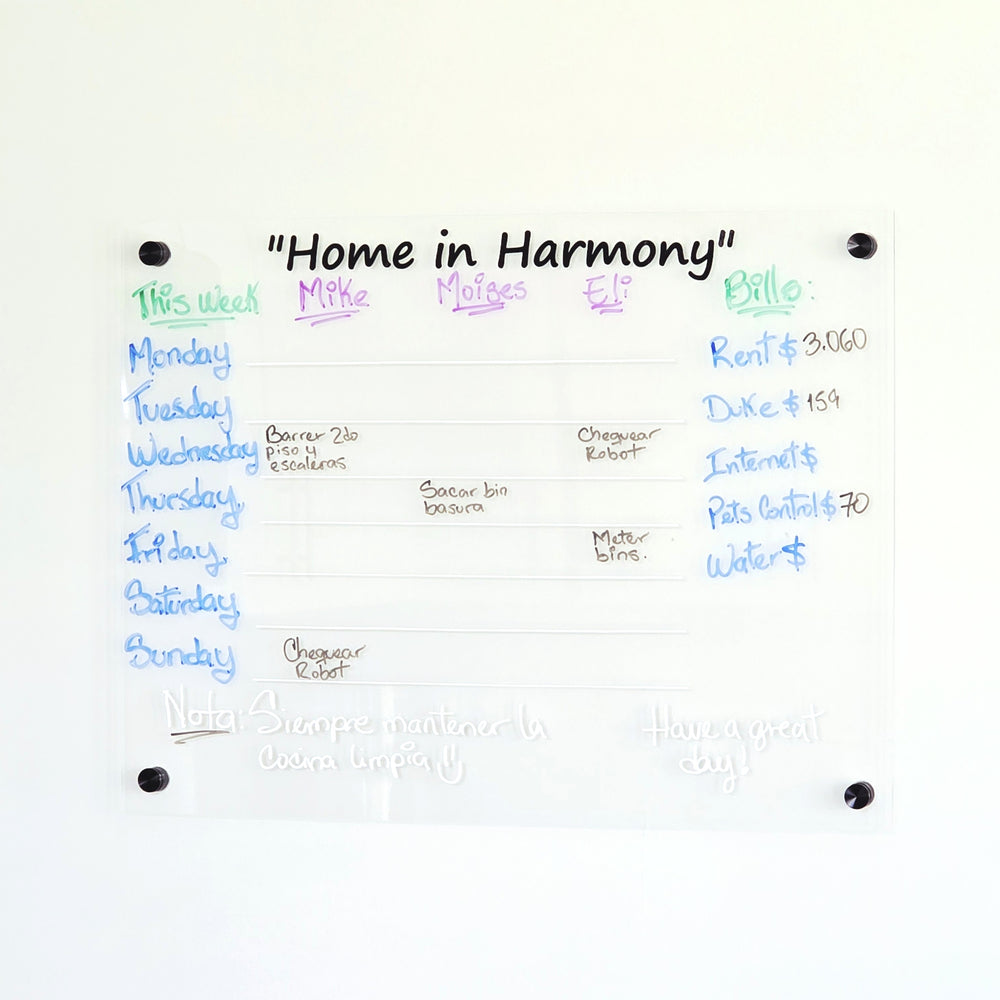 "Home in Harmony"
This week Mike Moises Eli Bills:
Monday Rent $ 3.060
Tuesday Duke $ 159
Wednesday Barrer 2do piso y escaleras Chequear Robot Internet $
Thursday Sacar bin basura Pets Control $ 70
Friday Meter bins. Water $
Saturday
Sunday Chequear Robot
Nota: Siempre mantener la
Cocina limpia
Have a great
day!